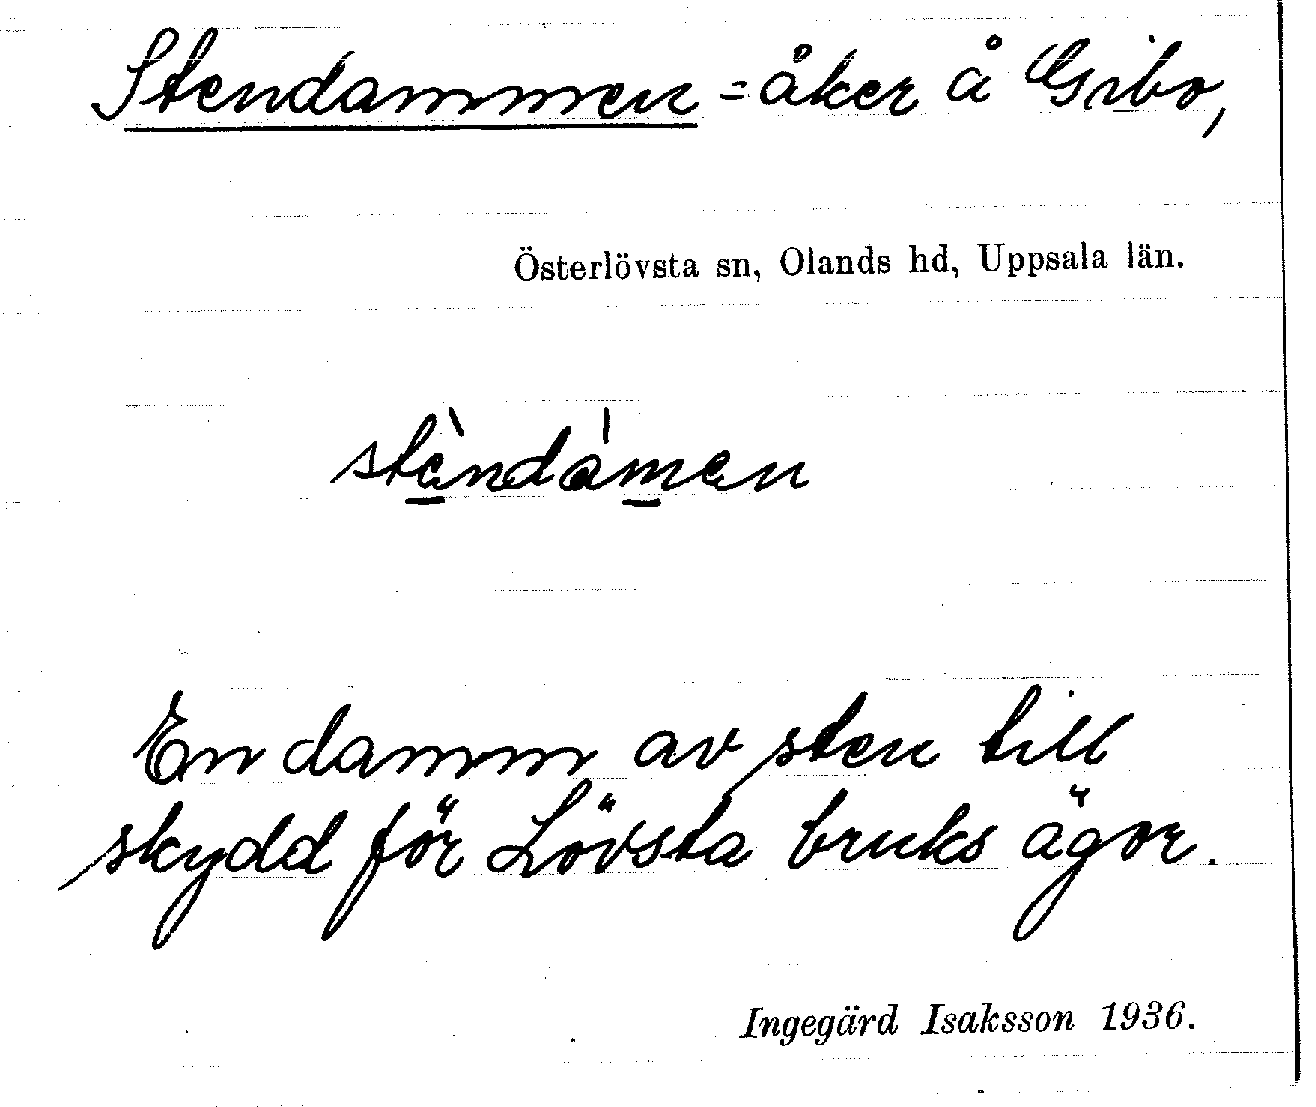 Stendammen = åker å Gribo,
Österlövsta sn, Olands hd, Uppsala län.
stèndámen
En damm av sten till
skydd för Lövsta bruks ägor.
Ingegärd Isaksson 1936.